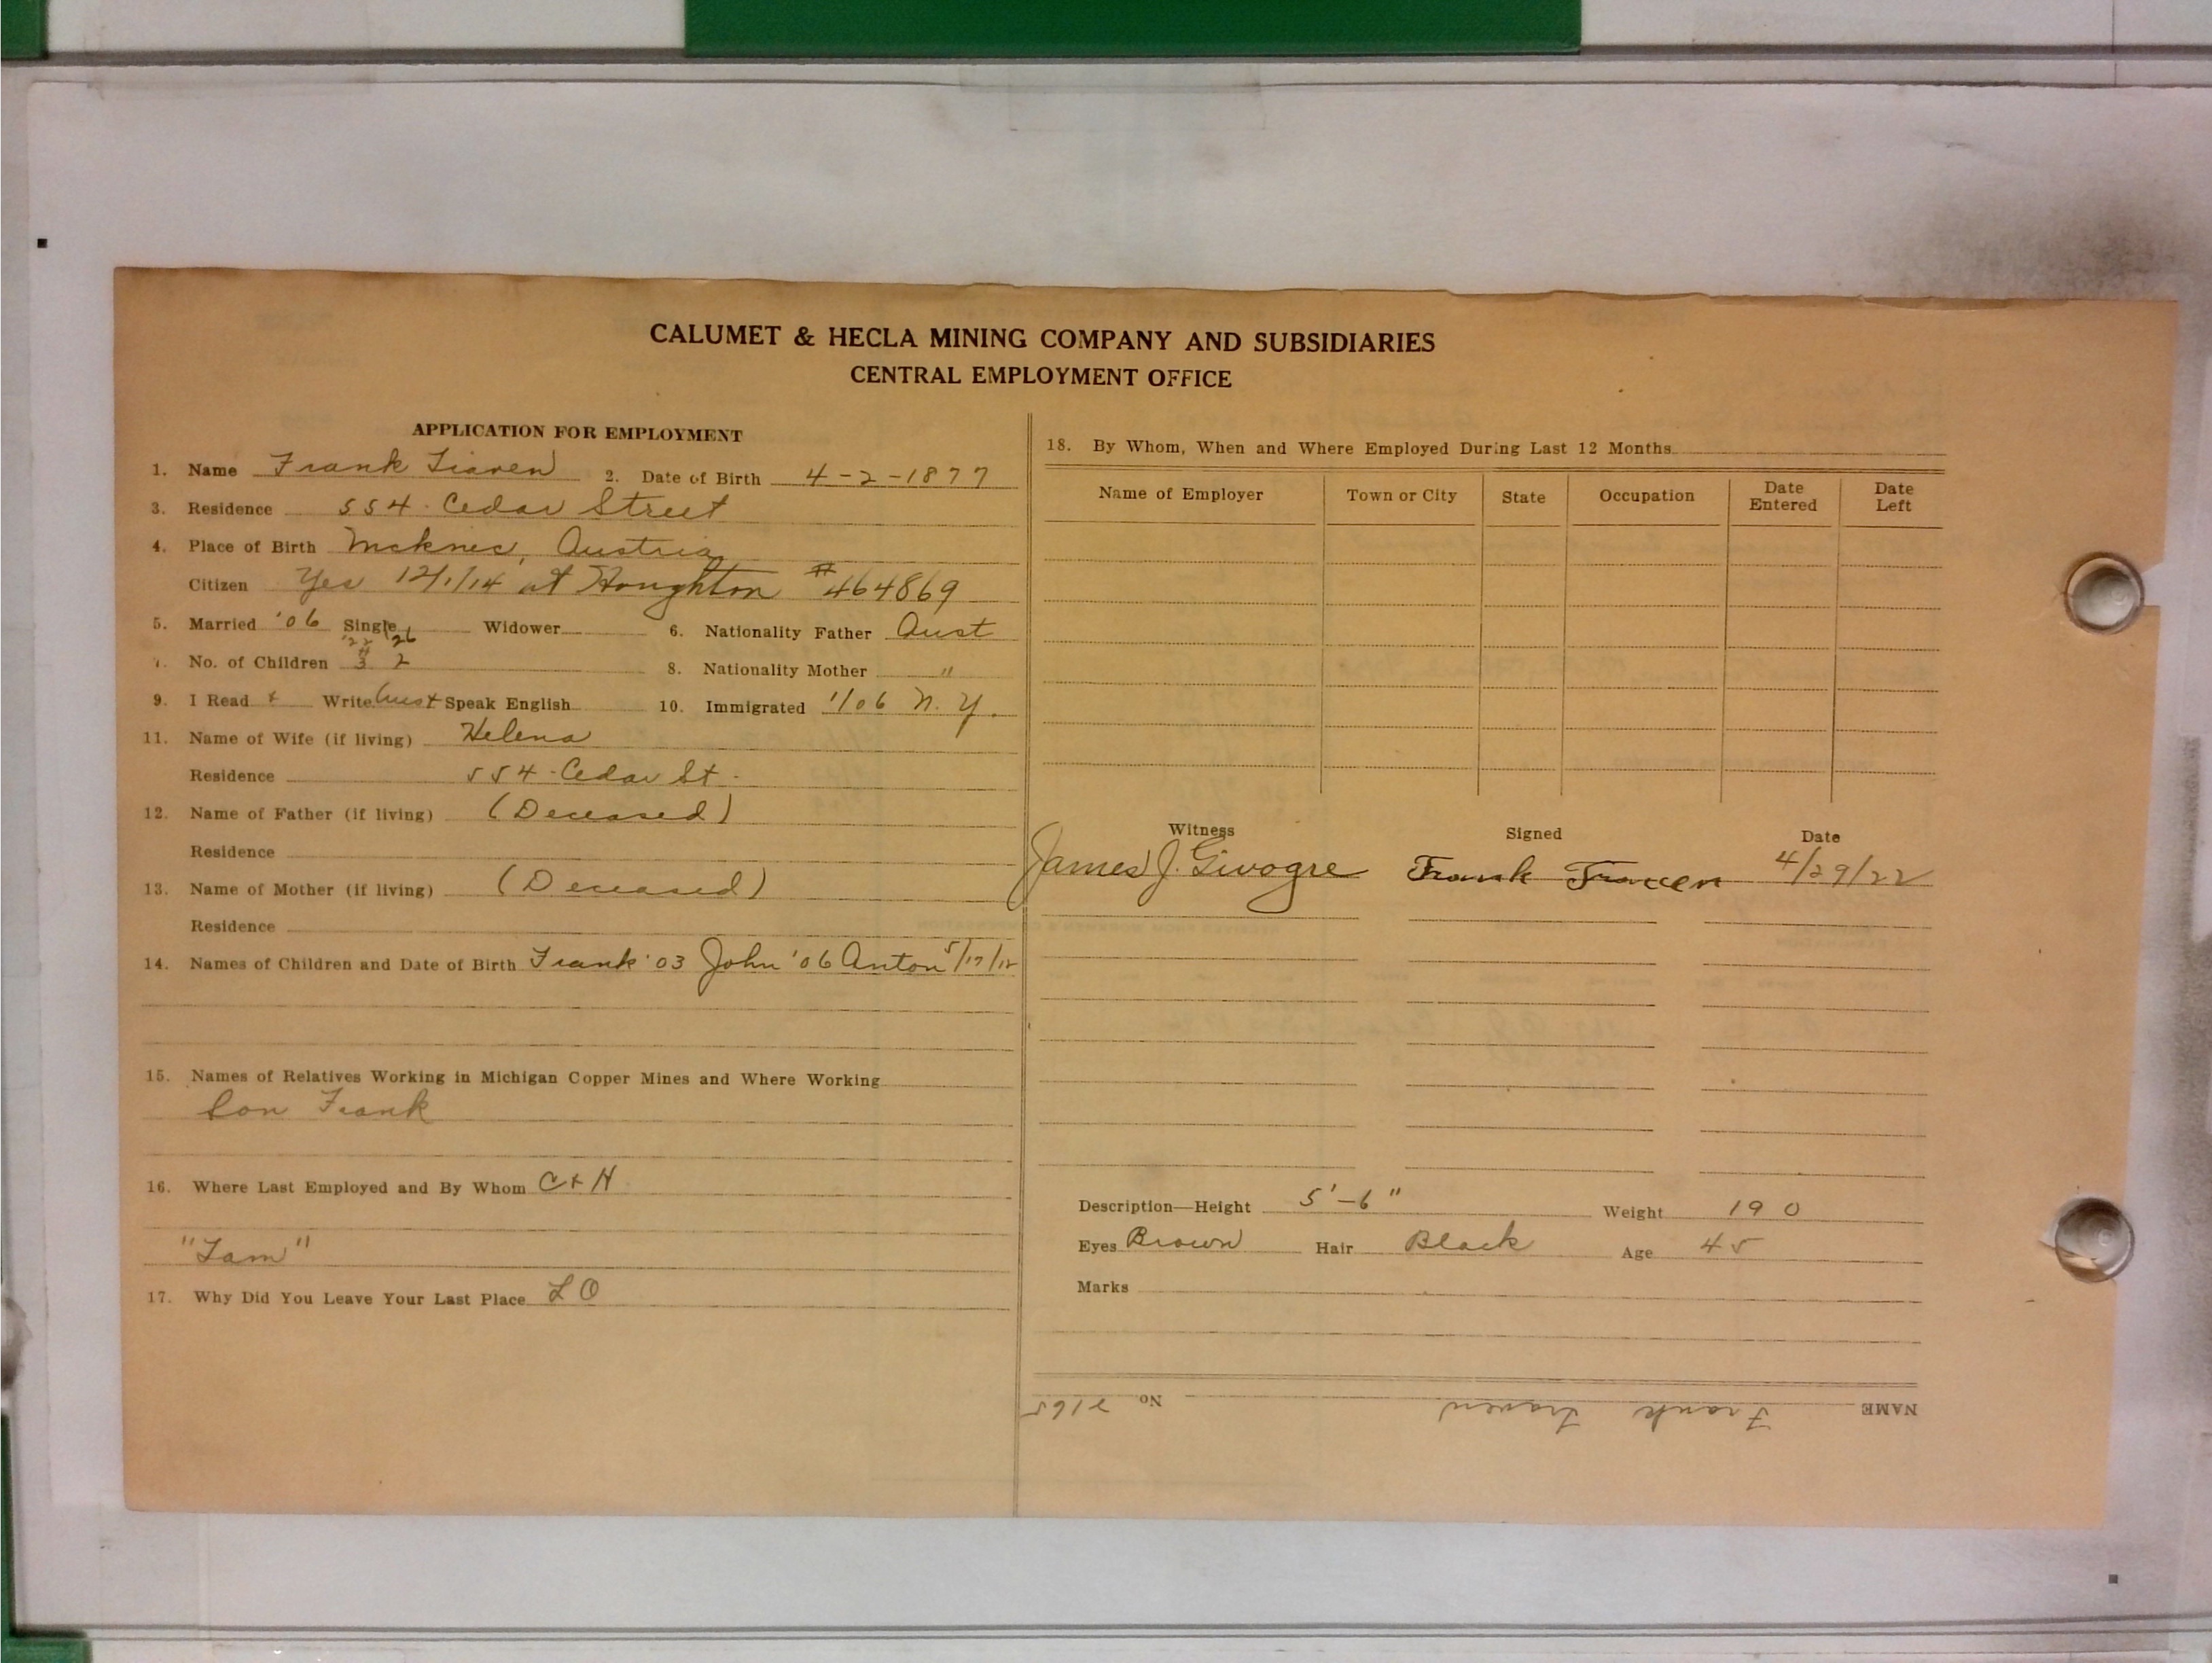 CALUMET & HECLA MINING COMPANY AND SUBSIDIARIES
CENTRAL EMPLOYMENT OFFICE
APPLICATION FOR EMPLOYMENT
1. Name Frank Traven 2. Date of Birth 4-2-1877
3. Residence 554 Cedar Street
4. Place of Birth Austria
Citizen Yes 12/1/14 at Houghton #464869
5. Married '06 Single Widower 6. Nationality Father Aust
'22 '26
7. No. of Children 3 2 8. Nationality Mother "
9. I Read + Write Aust Speak English 10. Immigrated 1/06 N.Y.
11. Name of Wife (if living) Helena
Residence 554 Cedar St.
12. Name of Father (if living) (Deceased)
Residence
13. Name of Mother (if living) (Deceased)
Residence
14. Names of Children and Date of Birth Frank '03 John '06 Anton 5/17/12
15. Names of Relatives Working in Michigan Copper Mines and Where Working
Son Frank
16. Where Last Employed and By Whom C + H
"Tam"
17. Why Did You Leave Your Last Place L O
18. By Whom, When and Where Employed During Last 12 Months
Name of Employer Town or City State Occupation Date Entered Date Left
Witness Signed Date
James J. Frank 4/29/22
Description—Height 5'-6" Weight 190
Eyes Brown Hair Black Age 45
Marks
NAME Frank Traven No. 7165